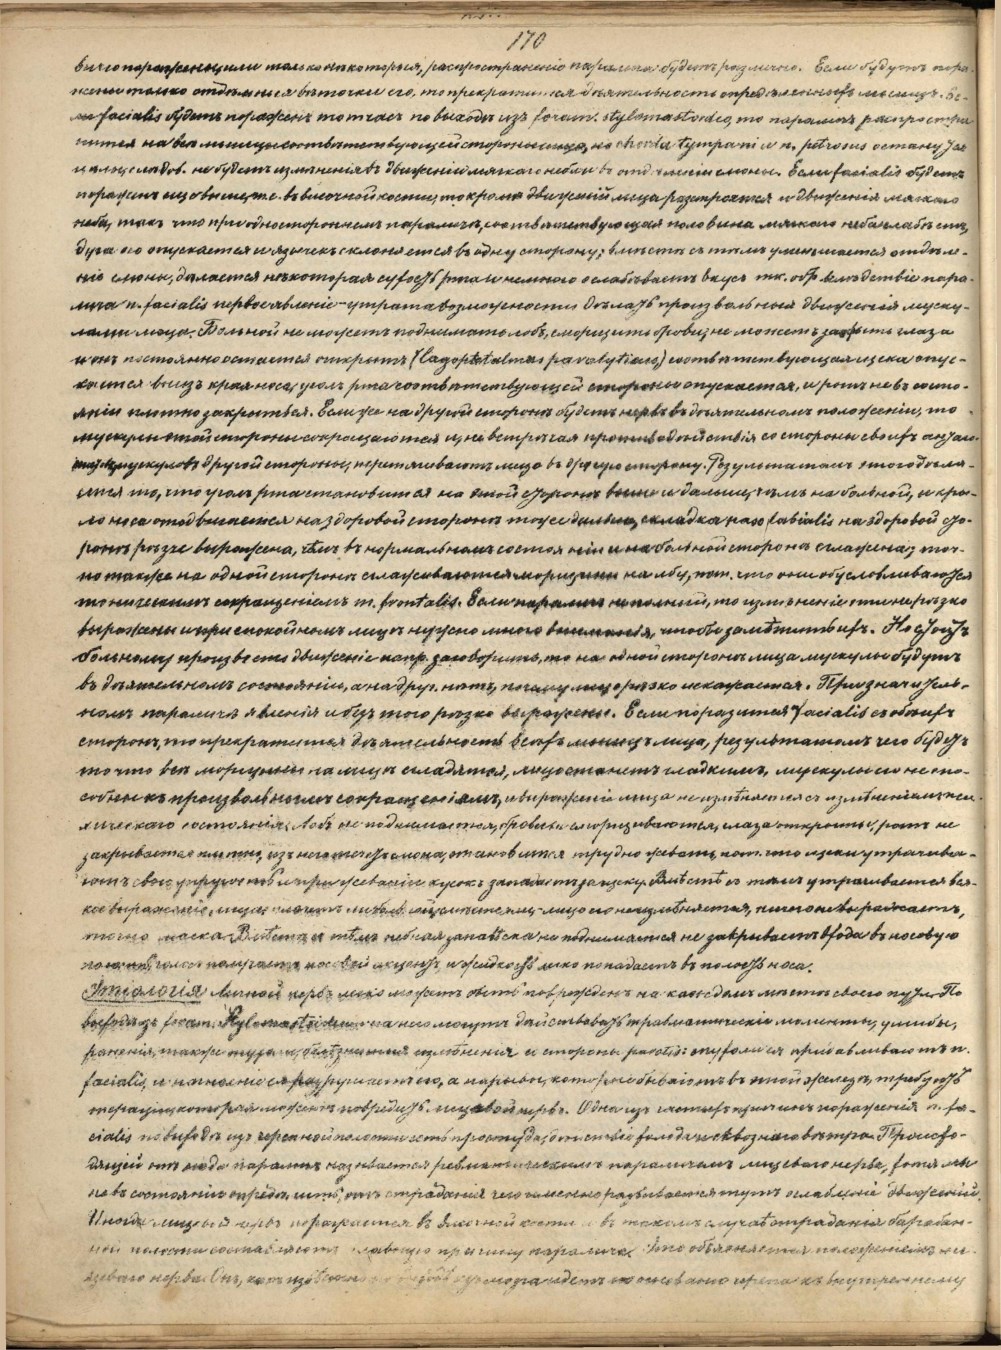 170
пораженъ или только некоторыя, распространеніе паралича будетъ различно. Если будутъ пора-
жены только отдѣльныя вѣточки его, то прекратится дѣятельность опредѣленныхъ мышцъ. Ес-
ли facialis будетъ пораженъ тотчасъ по выходѣ изъ foram. stylomastoideo, то параличъ распростра
нится на всѣ мышцы соотвѣтствующей стороны лица, но chorda tympani и n. petrosus останутся
не будетъ измѣненія въ движеніи мягкаго неба и въ отдѣленіи слюны. Если facialis будетъ
пораженъ еще выше, т.е. въ височной кости, то кромѣ движеній лица разстроятся и движенія мягкаго
неба, такъ что при одностороннемъ параличѣ, соотвѣтствующая половина мягкаго неба слабѣетъ,
дуга его опускается и язычекъ склоняется въ одну сторону; вмѣстѣ съ тѣмъ уменьшается отдѣле-
ніе слюны, дѣлается нѣкоторая сухость рта и немного ослабѣваетъ вкусъ Вслѣдствіе пара-
лича n. facialis первое явленіе - утрата возможности дѣлать произвольныя движенія муску-
лами лица. Больной не можетъ поднимать лобъ, сморщить брови, не можетъ закрыть глаза
и онъ постоянно остается открытъ (Lagophtalmus paralyticus) соотвѣтствующая щека опус-
кается внизъ края носа, уголъ рта соотвѣтствующей стороны опускается, и ротъ не въ состо-
яніи плотно закрыться. Если же на другой сторонѣ будетъ нервъ въ дѣятельномъ положеніи, то
мускулы этой стороны сокращаются и, не встрѣчая противодѣйствія со стороны своихъ антаго-
мускуловъ другой стороны, перетягиваютъ лицо въ другую сторону. Результатомъ этого явля-
ется то, что уголъ рта становится на этой сторонѣ выше и дальше, чѣмъ на больной, и кры-
ло носа отодвигается на здоровой сторонѣ тоже дальше, складка naso labialis на здоровой сто-
ронѣ рѣзче выражена, чѣмъ въ нормальномъ состояніи и на больной сторонѣ сглажена; точ-
но также на одной сторонѣ сглаживаются морщины на лбу, пот. что они обусловливаются
тоническимъ сокращеніемъ m. frontalis. Если параличъ неполный, то измѣненіе это не рѣзко
выражены и при спокойномъ лицѣ нужно много вниманія, чтобы замѣтить ихъ. Но стоитъ
больному произвести движеніе напр. заговорить, то на одной сторонѣ лица мускулы будутъ
въ дѣятельномъ состояніи, а на друг. нѣтъ, почему лицо рѣзко искажается. При значитель-
номъ параличѣ явленія и безъ того рѣзко выражены. Если поразится facialis съ обѣихъ
сторонъ, то прекратится дѣятельность всѣхъ мышцъ лица, результатомъ чего будетъ
то что всѣ морщины на лицѣ сгладятся, лицо станетъ гладкимъ, мускулы его не спо-
собны къ произвольнымъ сокращеніямъ, и выраженіе лица не измѣняется съ измѣненіемъ пси-
хическаго состоянія. Лобъ не поднимается, брови не сморщиваются, глаза открыты, ротъ не
закрывается плотно, изъ него течетъ слюна, становится трудно жевать, пот. что щеки утрачива-
ютъ свою упругость и при жеваніи кусокъ западаетъ за щеку. Вмѣстѣ съ тѣмъ утрачивается вся-
кое выраженіе лица, лицо его не измѣняется, ничего не выражаетъ,
точно маска. Вмѣстѣ съ тѣмъ небная занавѣска не поднимается не закрываетъ входа въ носовую
полость, голосъ получаетъ носовой акцентъ и жидкость легко попадаетъ въ полость носа.
Этіологія. Личной нервъ легко можетъ быть поврежденъ на каждомъ мѣстѣ своего пути. По
выходѣ изъ foram. stylomastoideum на него могутъ дѣйствовать травматическіе моменты, ушибы,
раненія, также болѣзненныя измѣненія со стороны parotis: опухоли ея придавливаютъ n.
facialis, и нагноеніе ея разрушаетъ его, а нарывы, которые бываютъ въ этой железѣ, требуютъ
операціи, которая можетъ повредить лицевой нервъ. Одна изъ частыхъ причинъ пораженія n. fa-
cialis по выходѣ изъ черепной полости есть простуда, дѣйствіе холода и сквознаго вѣтра. Происхо-
дящій отсюда параличъ называется ревматическимъ параличемъ лицеваго нерва, хотя мы
не въ состояніи опредѣлить, отъ страданія чего именно развивается тутъ ослабленіе движеній.
Иногда лицевой нервъ поражается въ височной кости и въ такомъ случаѣ страданія барабан-
ной полости составляютъ главную причину паралича. Это объясняется положеніемъ ли-
цеваго нерва. Онъ, какъ извѣстно, по выходѣ изъ мозга идетъ по основанію черепа къ внутреннему